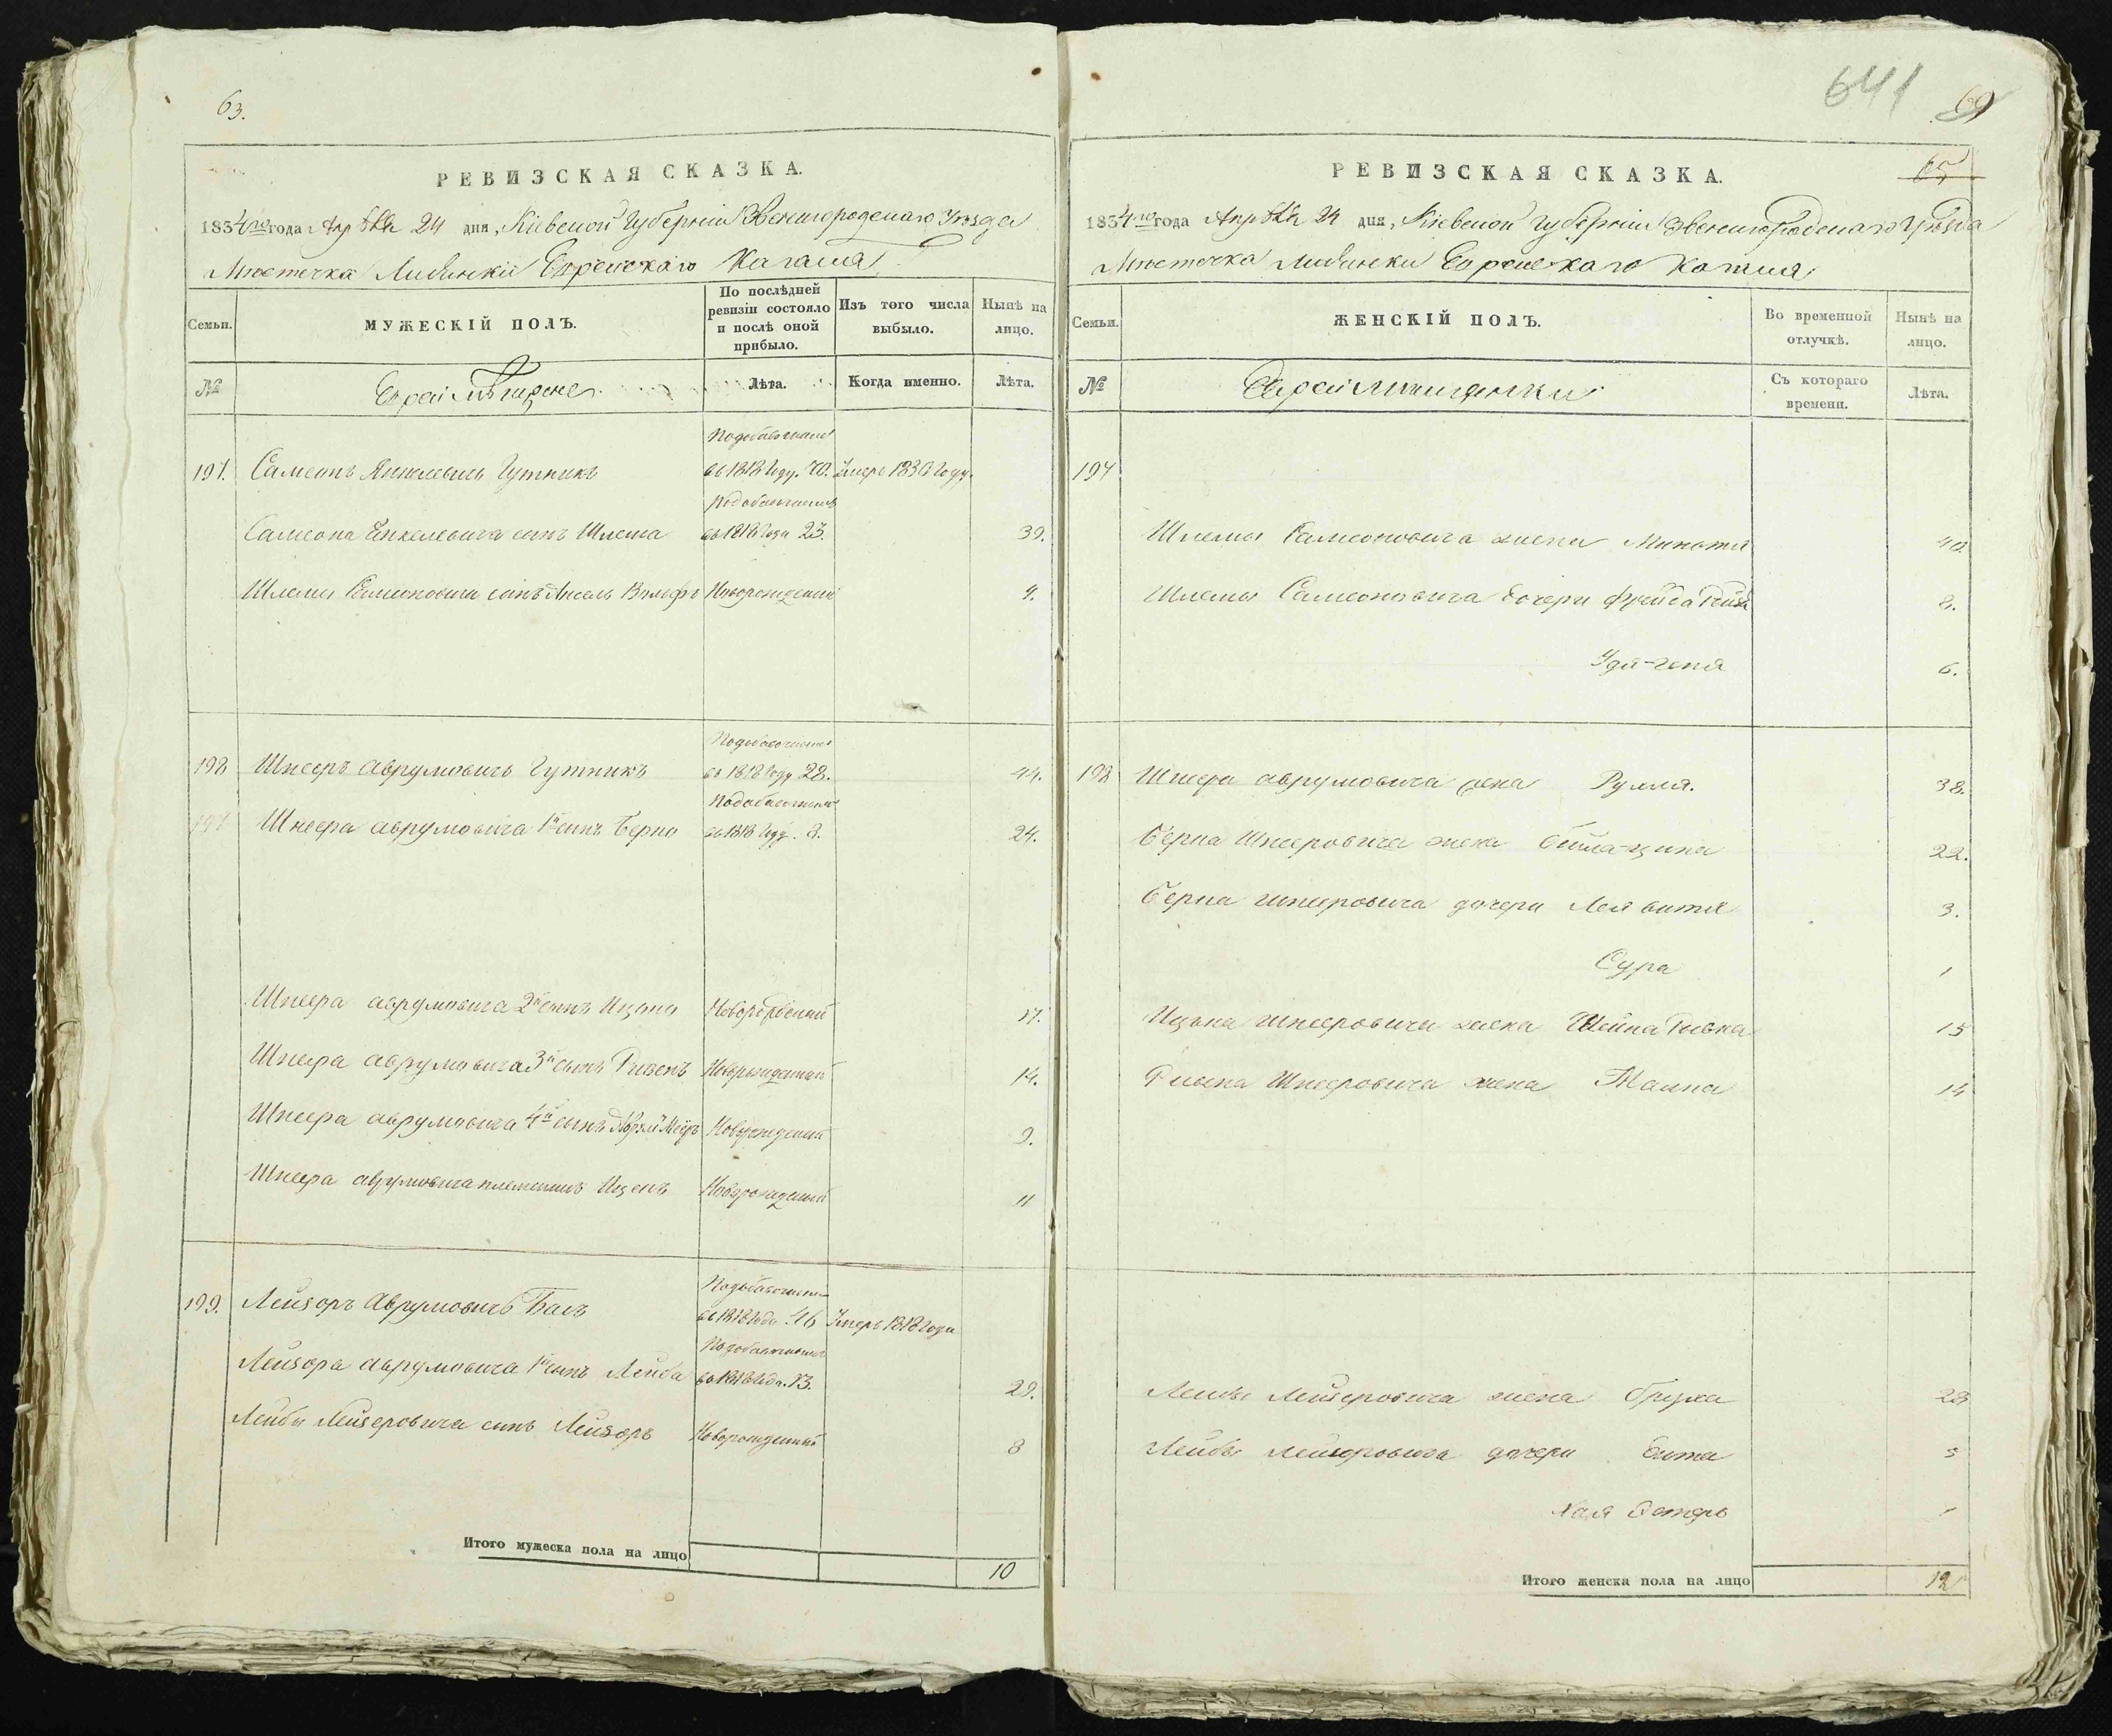 63.
РЕВИЗСКАЯ СКАЗКА.
1834го года Апрѣля 24 дня, Кіевской Губерніи Звенигородскаго Уѣзда
Мѣстечка Еврейскаго Кагала
Семьи.
МУЖЕСКІЙ ПОЛЪ.
По послѣдней ревизіи состояло и послѣ оной прибыло.
Изъ того числа выбыло.
Нынѣ на лицо.
№
Евреи Мѣщане
Лѣта.
Когда именно.
Лѣта.
197. Самсонъ Янкелевичь Гутникъ
въ 1818 Году. 70. Умеръ 1830 Году.
Самсона Янкелевича сынъ Шлема въ 1818 Года 23. 39.
Шлемы Самсоновича сынъ Ансель Вольфъ Новорожденный 9.
198 Шнееръ Аврумовичь Гутникъ въ 1818 Году 28. 44.
Шнеера Аврумовича 1й сынъ Берко въ 1818 Году. 8. 24.
Шнеера Аврумовича 2й сынъ Ицько Новорожденный 17.
Шнеера Аврумовича 3й сынъ Рувенъ Новорожденный 14.
Шнеера Аврумовича 4й сынъ Меїръ Новорожденный 9.
Шнеера Аврумовича племянникъ Новорожденный 11
199. Лейзоръ Аврумовичь въ 1818 Года. 46 Умеръ 1818 Года
Лейзора Аврумовича 1й сынъ Лейба въ 1818 Года. 13. 29.
Лейбы Лейзеровича сынъ Лейзоръ Новорожденный 8
Итого мужеска пола на лицо
10
641
69
65
РЕВИЗСКАЯ СКАЗКА.
1834го года Апрѣля 24 дня, Кіевской Губерніи Звенигородскаго Уѣзда
Мѣстечка Еврейскаго Кагала
Семьи.
ЖЕНСКІЙ ПОЛЪ.
Во временной отлучкѣ.
Нынѣ на лицо.
№
Евреи Мѣщанки
Съ котораго времени.
Лѣта.
197
Шлемы Самсоновича жена 40
Шлемы Самсоновича дочери Фрейда 8.
6.
198 Шнеера Аврумовича жена Рухля. 38.
Берка Шнееровича жена Бейла-ципа 22.
Берка Шнееровича дочери Лея 3.
Сура 1
Ицька Шнееровича жена Шейна Ривка 15
Рувена Шнееровича жена 14
Лейбы Лейзеровича жена Бруха 28
Лейбы Лейзеровича дочери 3
Хая Эстеръ 1
Итого женска пола на лицо
12